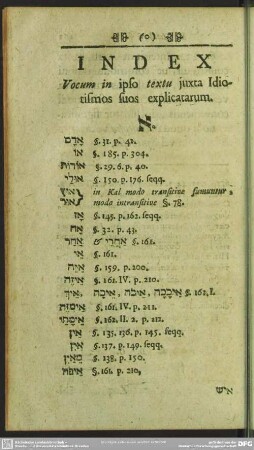 (o)
INDEX
Vocum in ipso textu juxta Idio-
tismos suos explicatarum.
א.
אָדָם §. 31. p. 42.
אוֹ §. 185. p. 304.
אוֹדוֹת §. 29. 6. p. 40.
אוּלַי §. 150. p. 176. seqq.
in Kal modo transitive sumuntur,
אור modo intransitive §. 78.
אָז §. 145. p. 162. seqq.
אָח §. 32. p. 43.
אַחַר & אַחֲרֵי §. 161.
אֵי §. 161.
אַיֵּה §. 159. p. 200.
אֵיזֶה §. 161. IV. p. 210.
אֵיךְ, אֵיכָה, אֵיכֹה, אֵיכָכָה §. 162. I.
§. 161. IV. p. 211.
§. 162. II. 2. p. 212.
אֵין §. 135. 136. p. 145. seqq.
אַיִן §. 137. p. 149. seqq.
מֵאַיִן §. 138. p. 150.
§. 161. p. 210,
איש